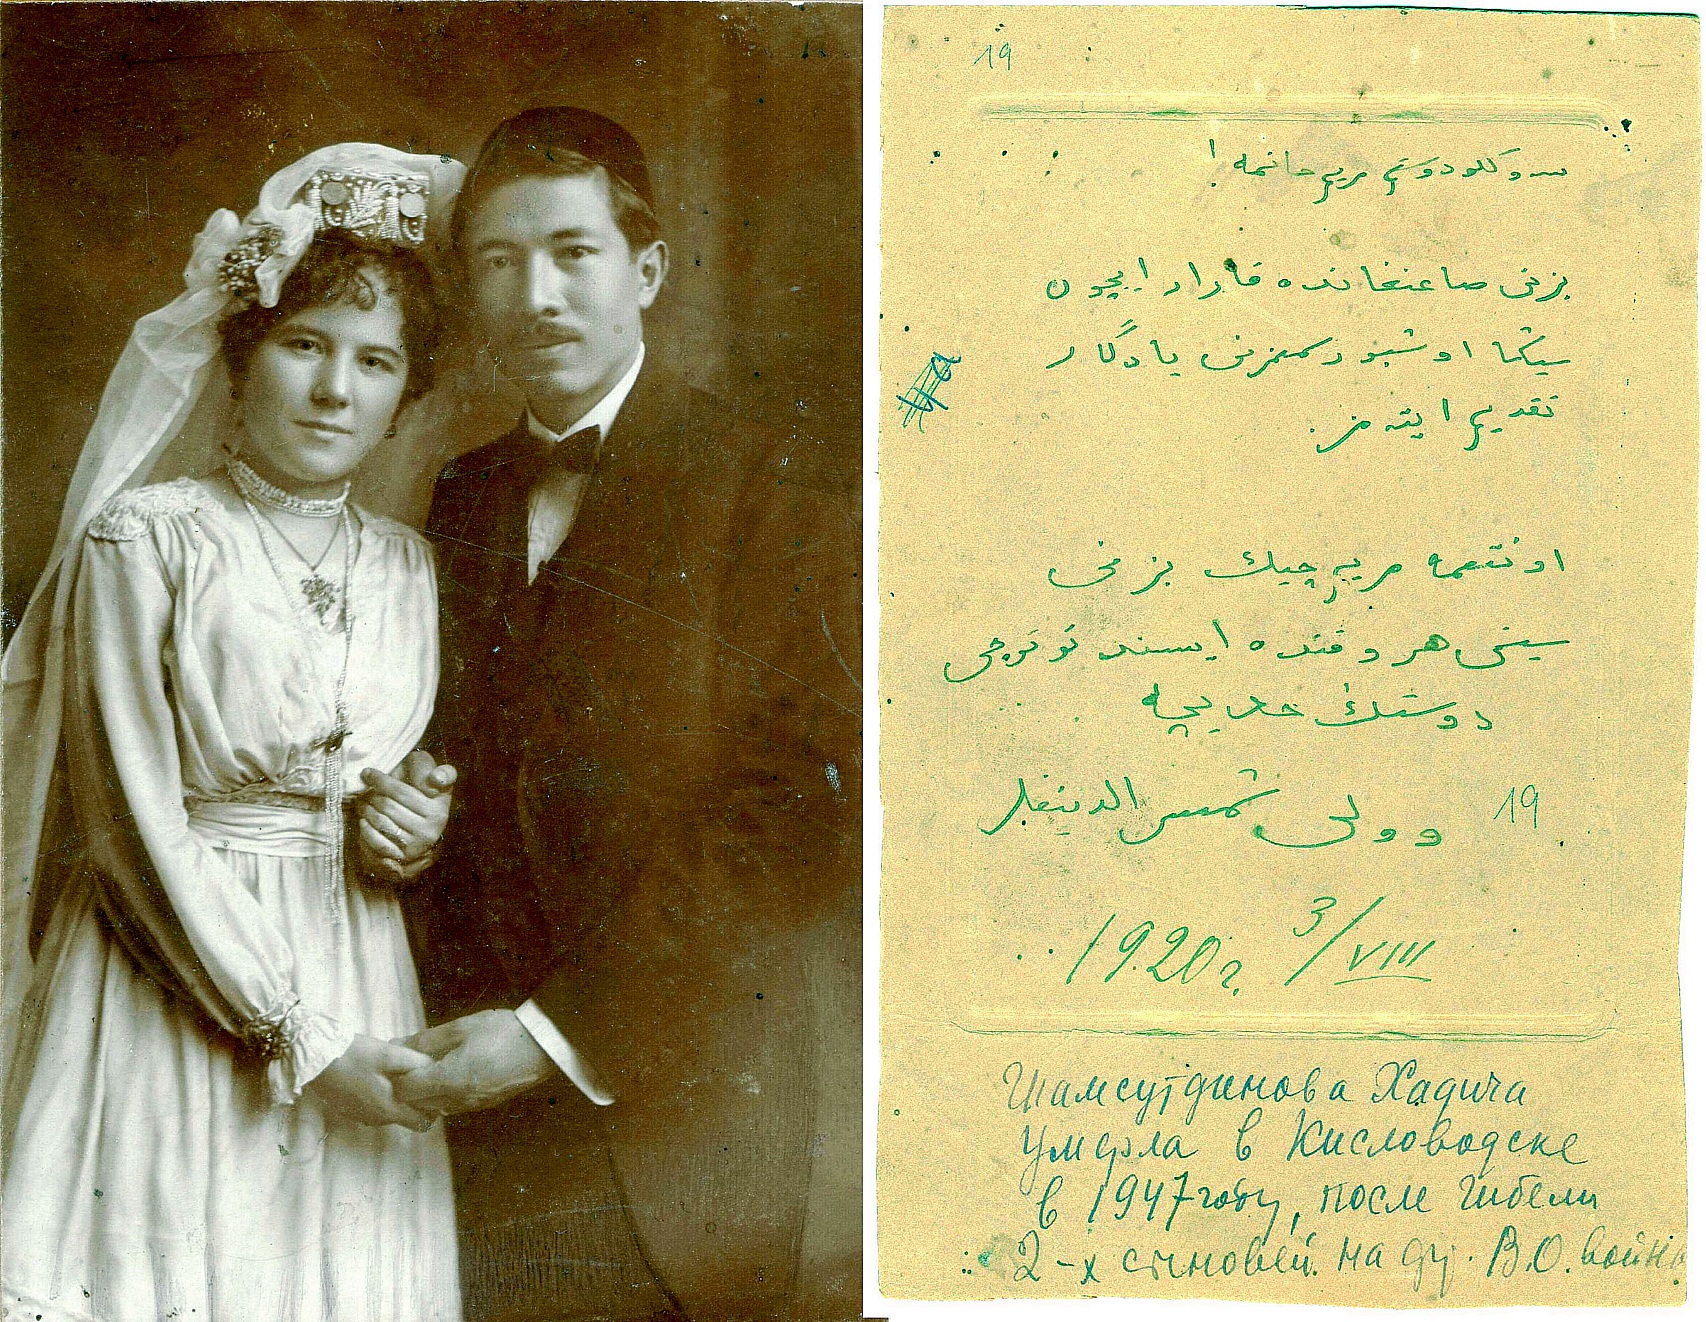 19
سوكلو دوستم مريم خانمه!
بزنى صاغنغانده قارار ايچون
سيڭا اوشبو رسمزنى يادگار
تقديم ايته مز.
اونتمه مريم چيك بزنى
سينى هر وقتده ايسنده توتوچى
دوستڭ خديچه
19 و ولى شمس الدينفلر
1920 г. 3/VIII
Шамсутдинова Хадича
умерла в Кисловодске
в 1947 году, после гибели
2-х сыновей на В.О. войне